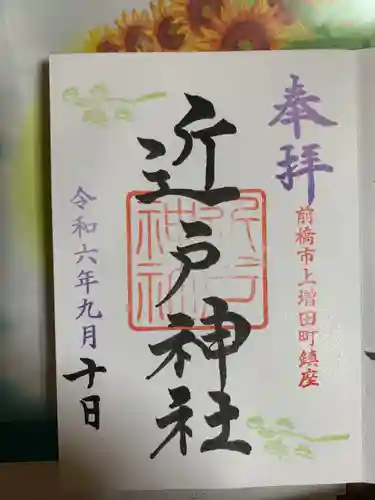 奉拝
前橋市上増田町鎮座
近戸神社
令和六年九月十日